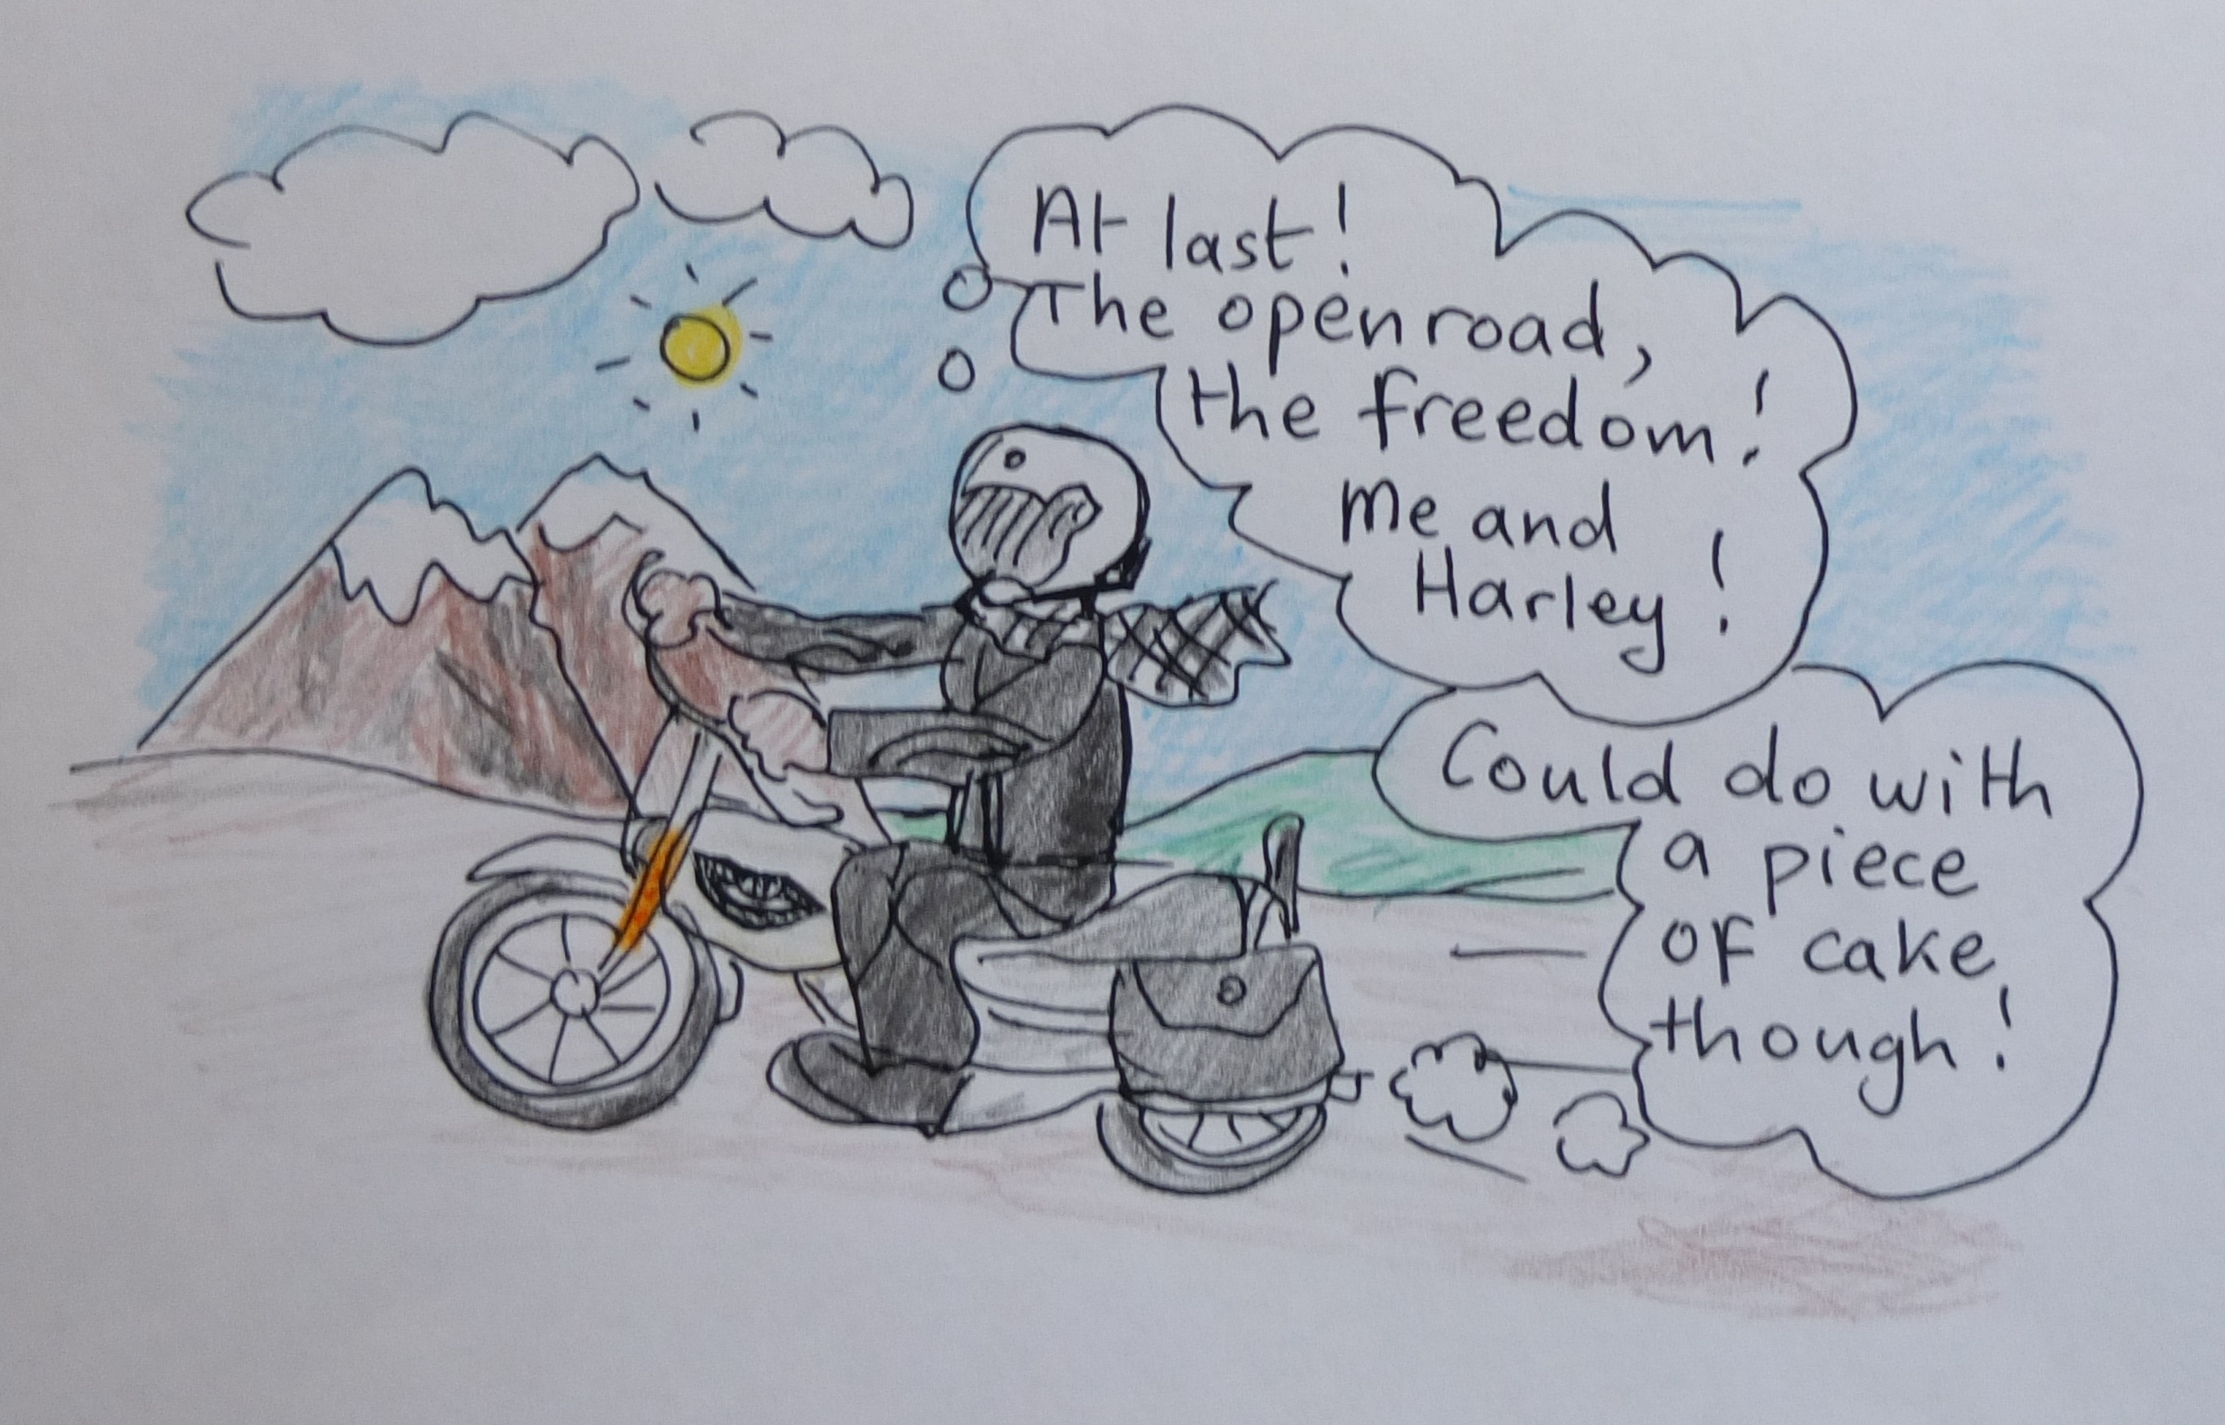 At last!
The open road,
the freedom!
Me and
Harley!
Could do with
a piece
of cake
though!